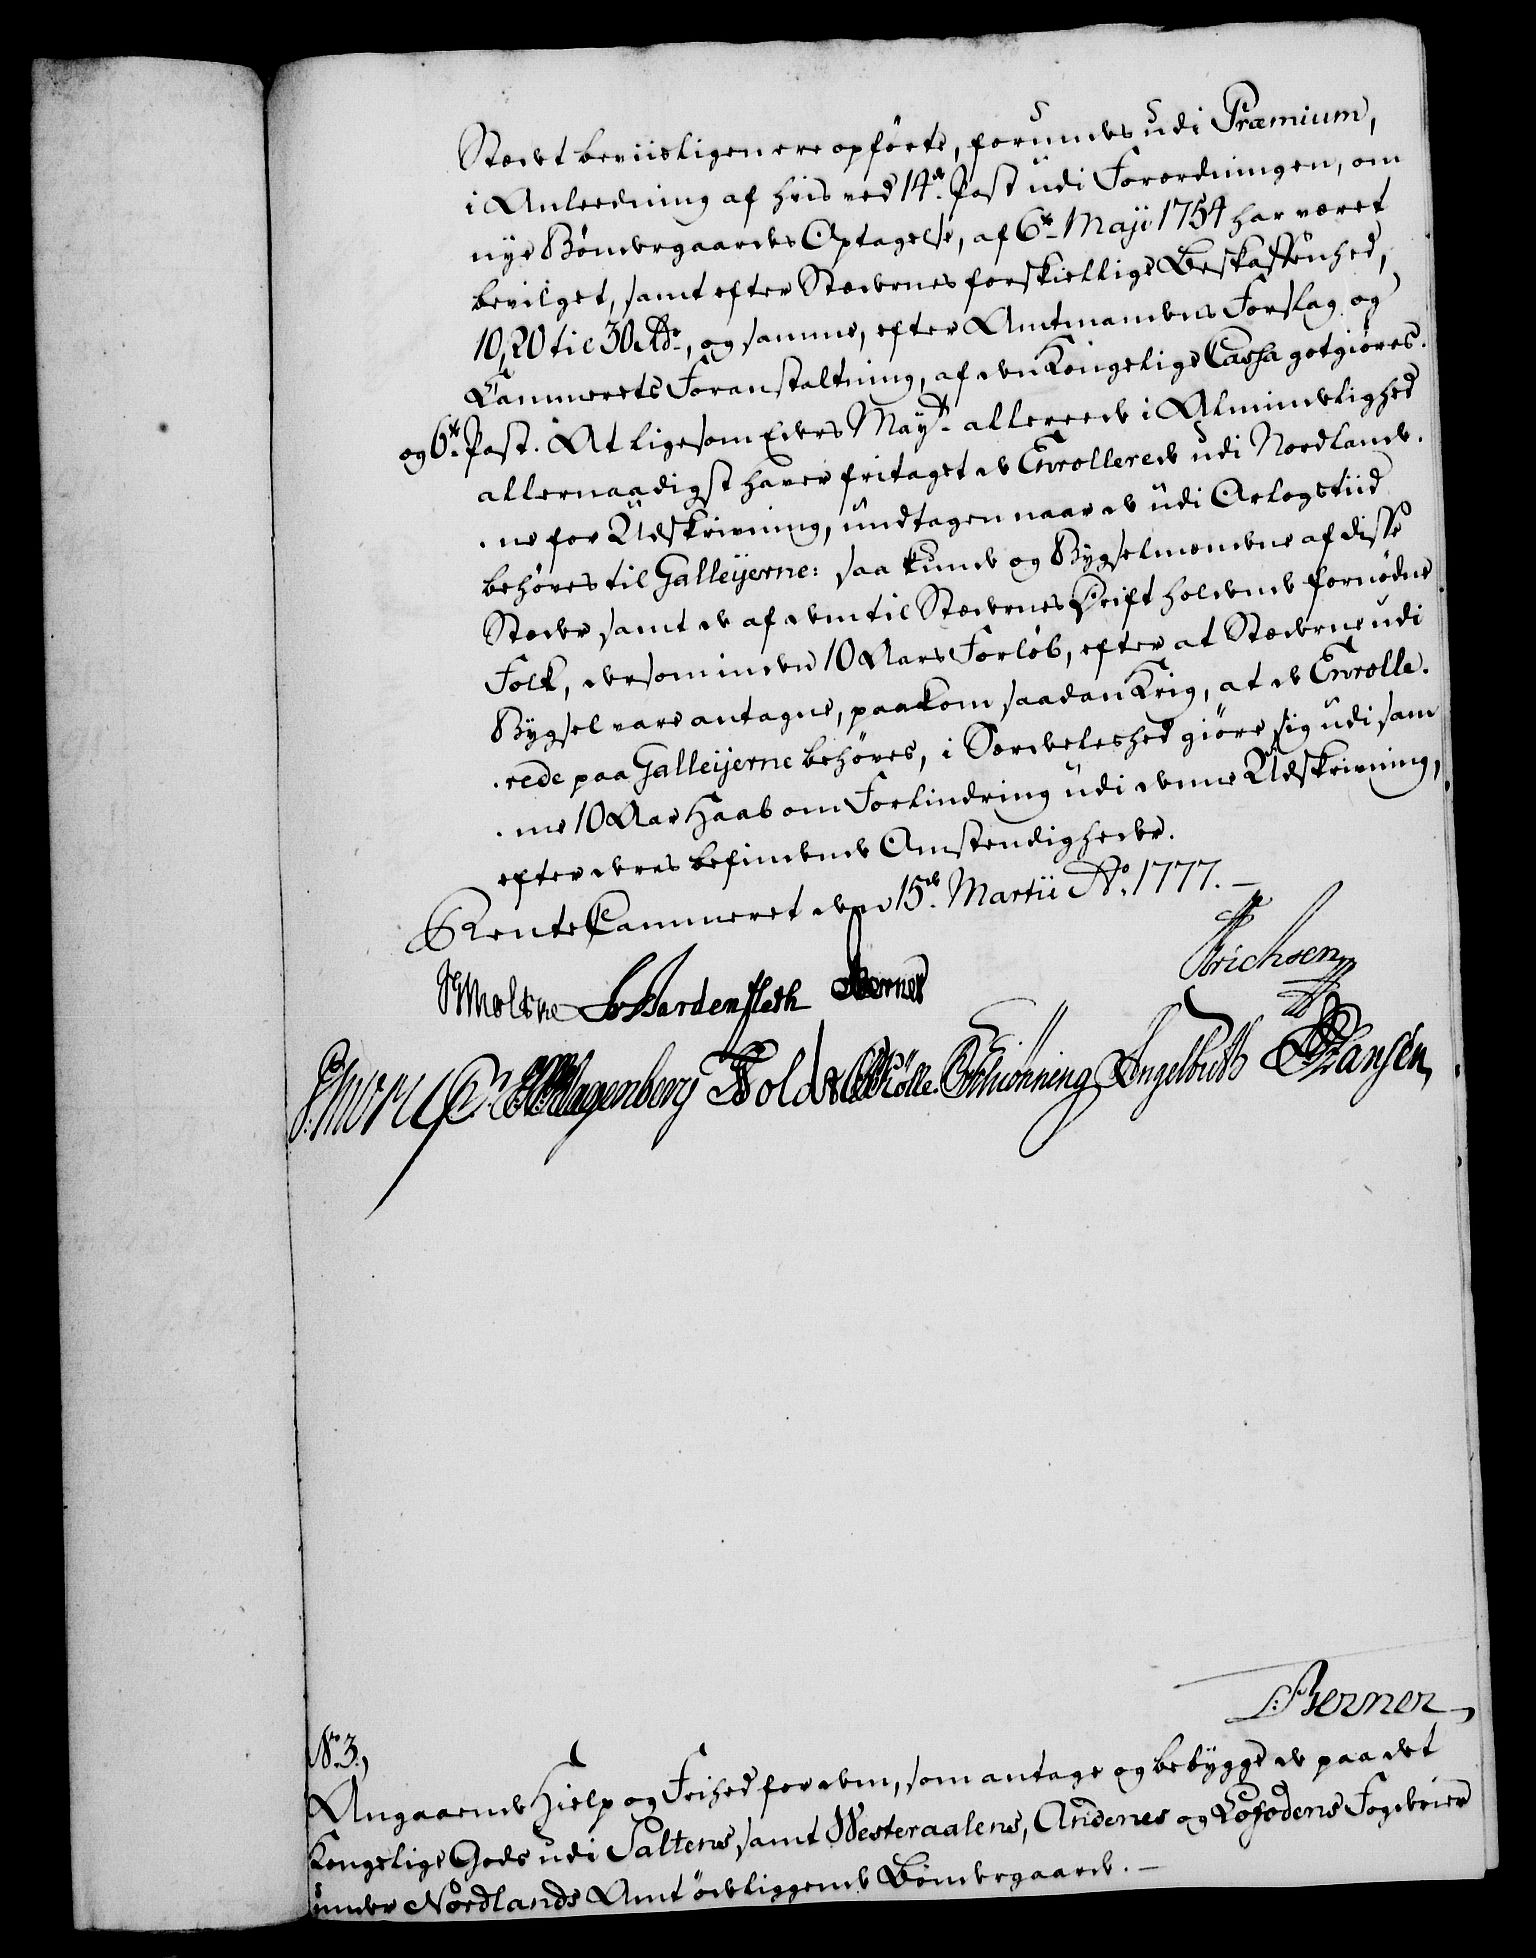 Stædet beviisligen ere opførte, forundes udi Præmium,
i Anleedning af hvis ved 14de Post udi Forordningen, om
nye Bøndergaardes Optagelse, af 6te Maji 1754 har været
bevilget, samt efter Stædernes forskiellige Beskaffenhed,
10, 20 til 30 Rdr, og samme, efter Amtmandens Forslag og
Kammerets Foranstaltning, af den Kongelige Cassa godtgiøres.
og 6te Post. At ligesom Eders Mayt allereede i Almindelighed
allernaadigst haver fritaget de Enrollerede udi Nordlande-
-ne for Udskrivning, undtagen naar de udi Orlogstiid
behøves til Galleijerne: saa kunde og Bygselmændene af disse
Stæder samt de af dem til Stædernes Drift holdende fornødne
Folk, dersom inden 10 Aars Forløb, efter at Stæderne udi
Bygsel vare antagne, paakom saadan Krig, at de Enrolle-
-rede paa Galleijerne behøves, i Særdeleshed giøre sig udi sam
-me 10 Aar Haab om Forlindring udi denne Udskrivning,
efter deres befindende Omstendigheder.
RenteKammeret den 15de Martii Ao. 1777. —
Moltke Hardenfleth Berner Erichsen
Wagenberg Holdt Kølle Schiønning Engelbreth Hansen
Berner
No. 3.,
Angaaende Hielp og Frihed for dem, som antage og bebygge de paa det
Kongelige Gods udi Saltens samt Westeraalens, Andenes og Lofodens Fogderier
under Nordlands Amt ødeliggende Bøndergaarde. —